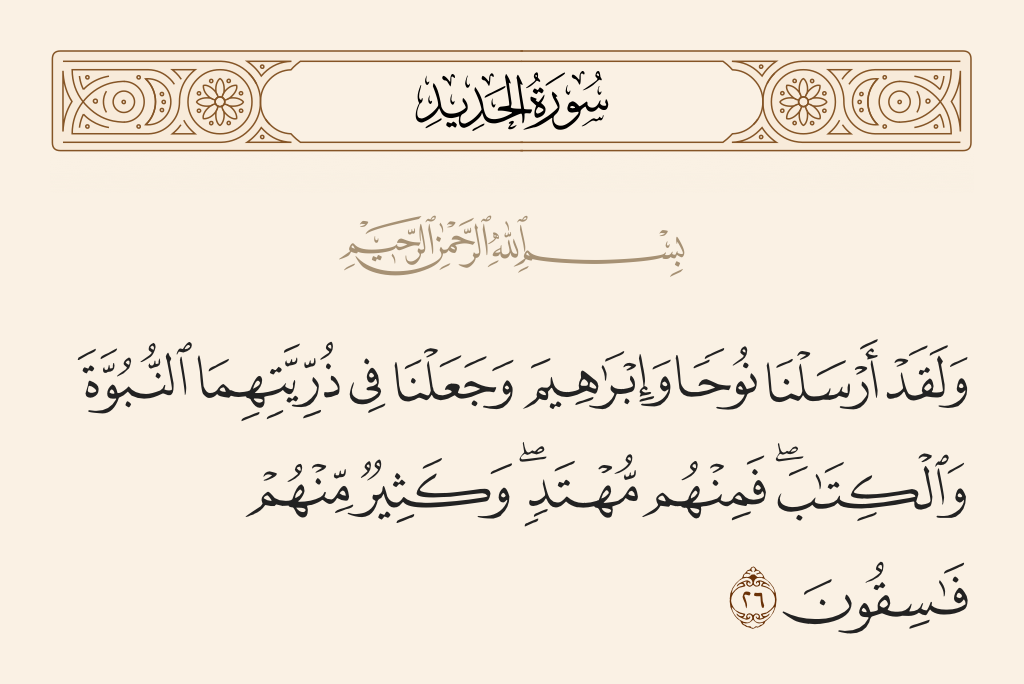 سُورَةُ الحَدِيدِ
بِسْمِ ٱللَّهِ ٱلرَّحْمَٰنِ ٱلرَّحِيمِ
وَلَقَدْ أَرْسَلْنَا نُوحًا وَإِبْرَٰهِيمَ وَجَعَلْنَا فِى ذُرِّيَّتِهِمَا ٱلنُّبُوَّةَ
وَٱلْكِتَٰبَ ۖ فَمِنْهُم مُّهْتَدٍ ۖ وَكَثِيرٌ مِّنْهُمْ
فَٰسِقُونَ ٢٦